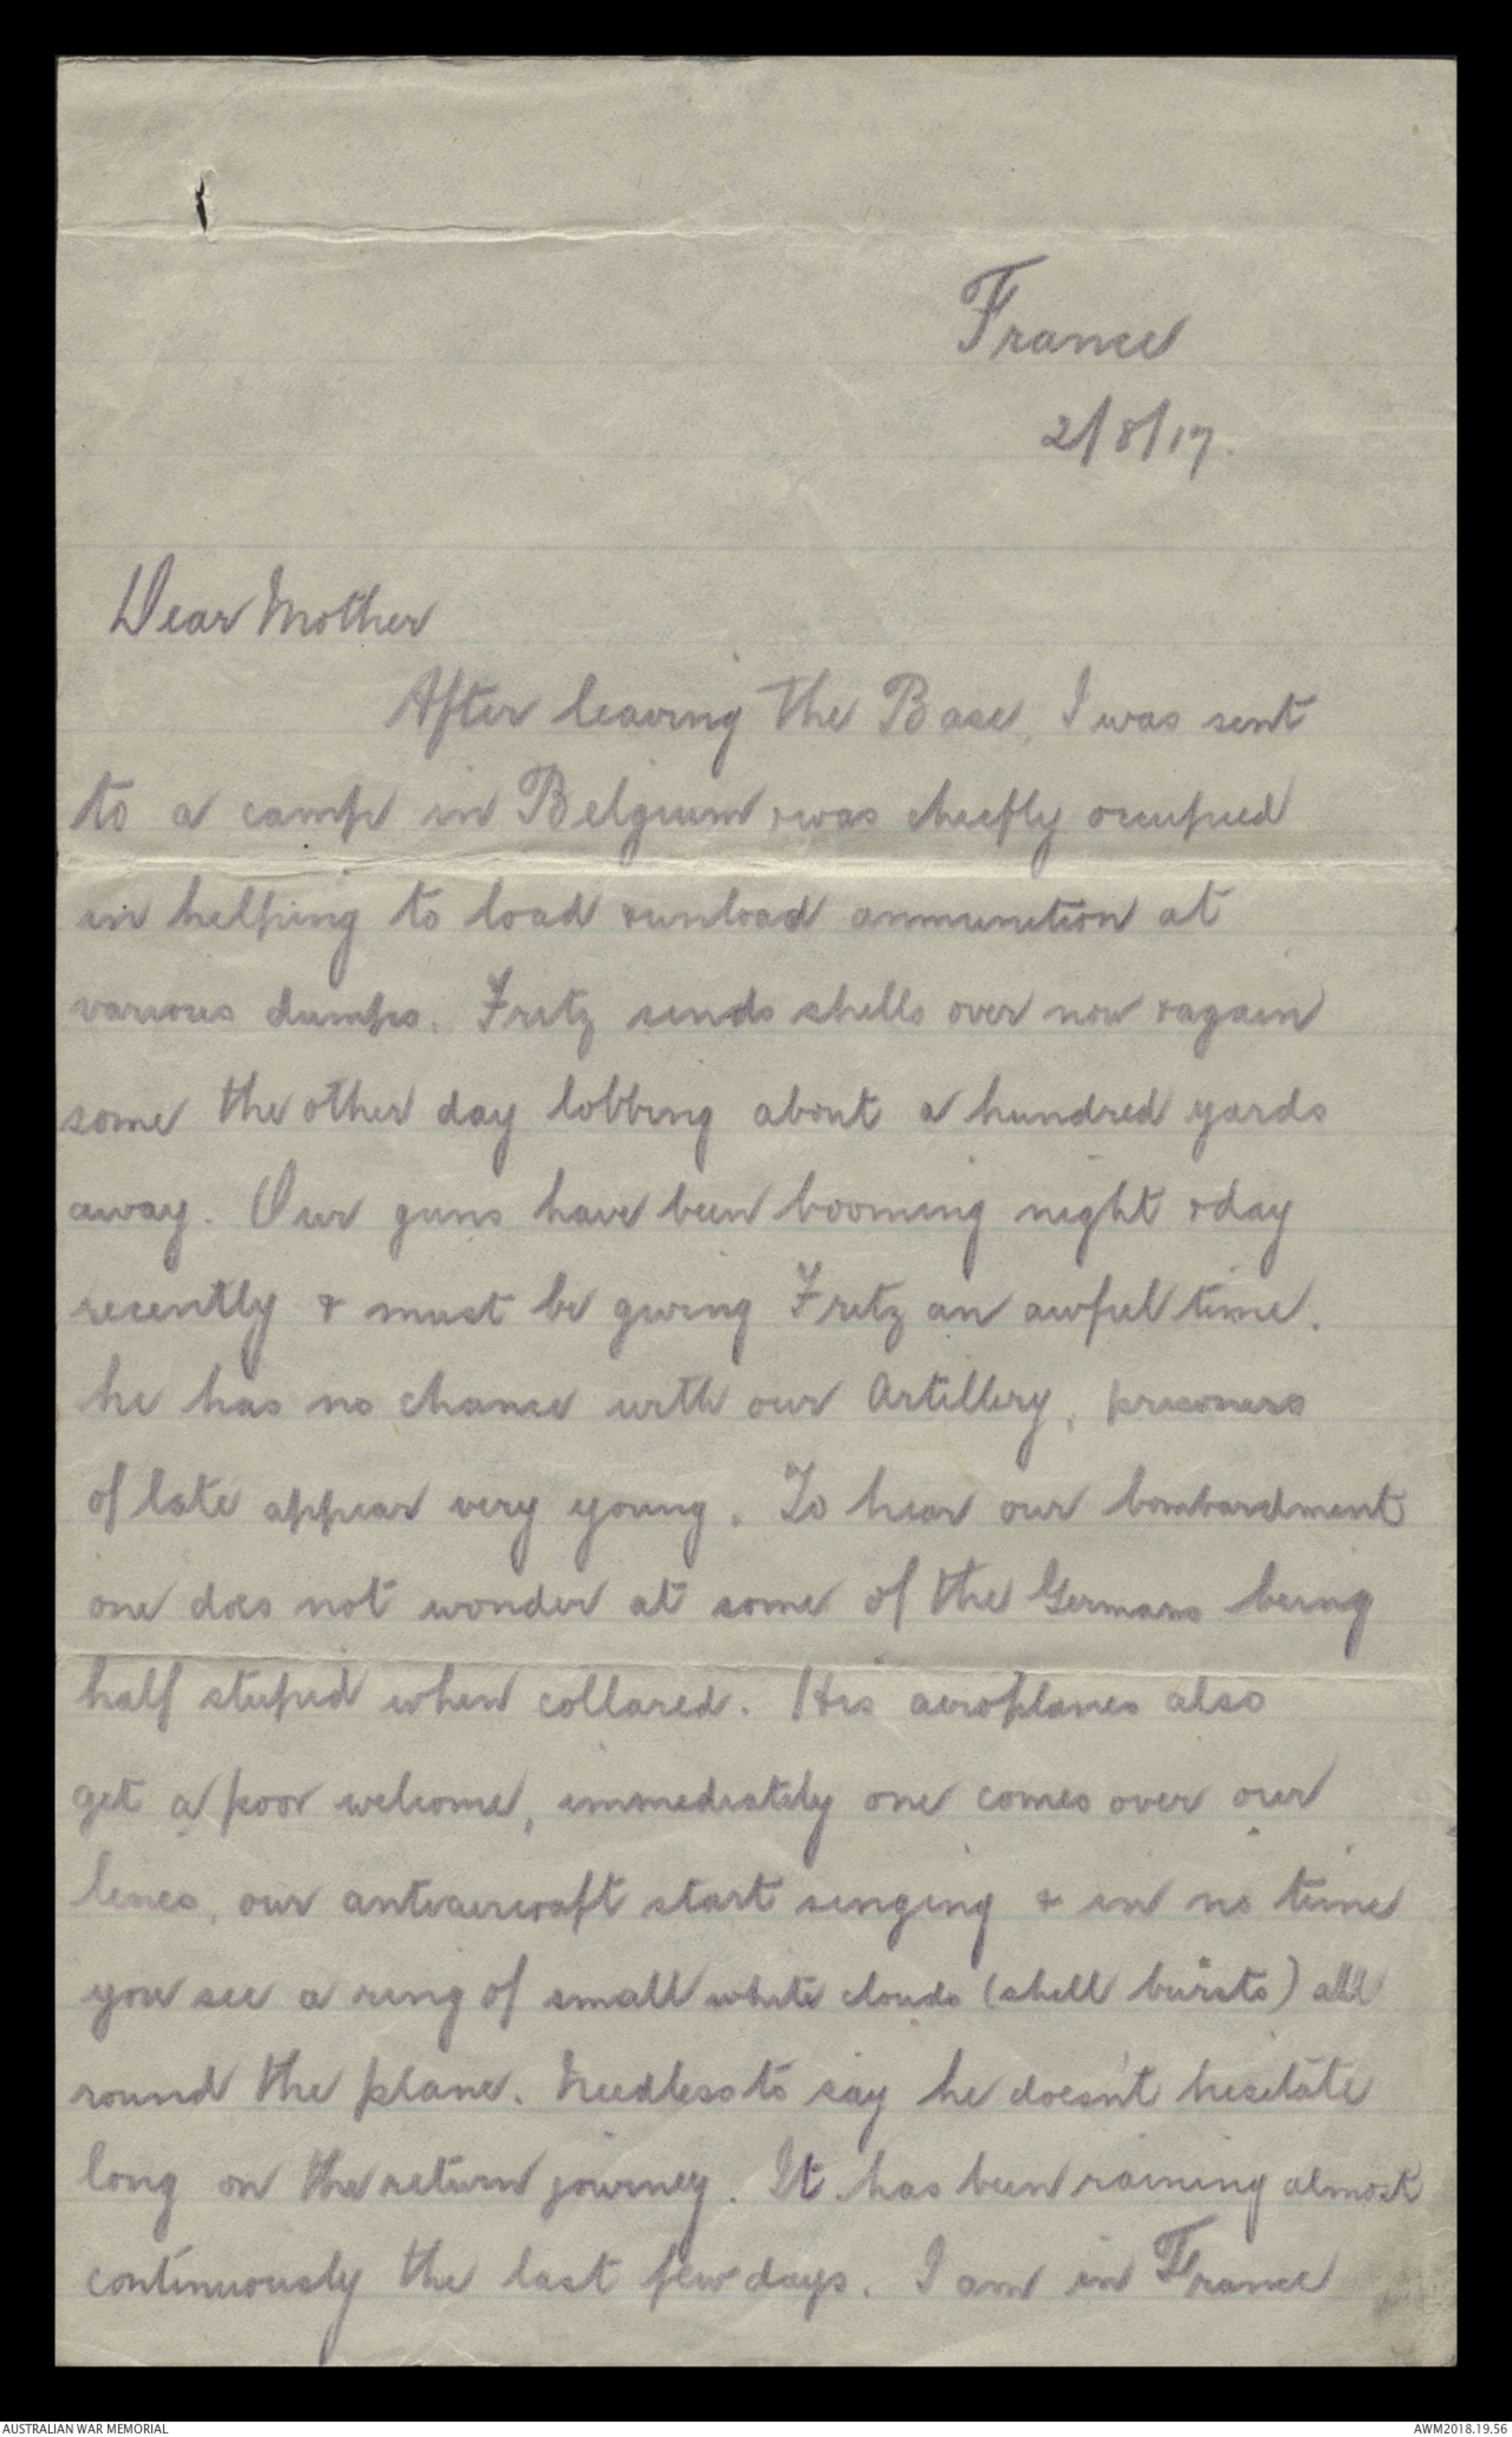 France
2/8/17.
Dear Mother
After leaving the Base, I was sent
to a camp in Belgium & was chiefly occupied
in helping to load & unload ammunition at
various dumps. Fritz sends shells over now & again
some the other day lobbing about a hundred yards
away. Our guns have been booming night & day
recently & must be giving Fritz an awful time.
he has no chance with our Artillery, prisoners
of late appear very young. To hear our bombardment
one does not wonder at some of the Germans being
half stupid when collared. His aeroplanes also
get a poor welcome, immediately one comes over our
lines, our antiaircraft start singing & in no time
you see a ring of small white clouds (shell bursts) all
round the plane. Needless to say he doesn't hesitate
long on the return journey. It has been raining almost
continuously the last few days. I am in France
AUSTRALIAN WAR MEMORIAL
AWM2018.19.56